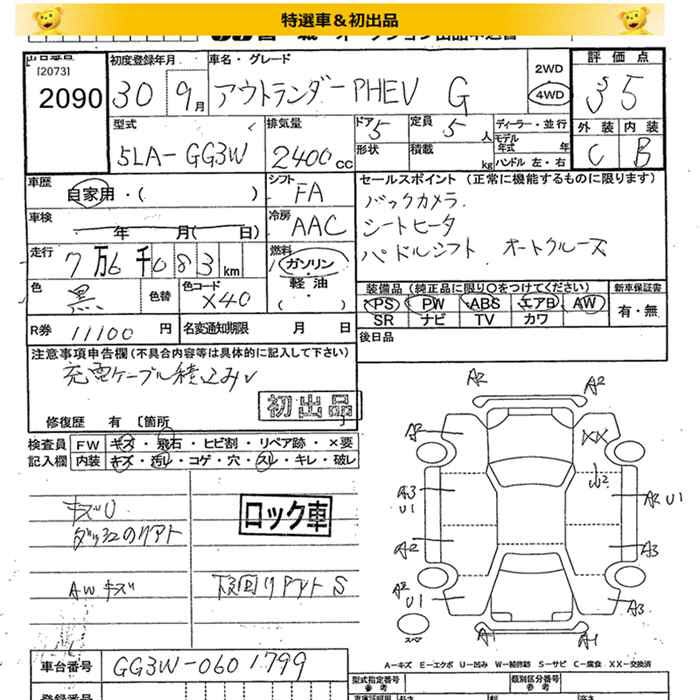 特選車＆初出品
[2073]
2090
初度登録年月
30 9月
車名・グレード
アウトランダーPHEV G
2WD
4WD
評価点
3.5
型式
5LA-GG3W
排気量
2400cc
ドア 5
形状
定員 5人
積載 kg
ディーラー・並行
モデル年式 年
ハンドル 左・右
外装 内装
C B
車歴
自家用・( )
シフト
FA
セールスポイント (正常に機能するものに限ります)
バックカメラ
シートヒータ
パドルシフト オートクルーズ
車検
年 月( 日)
冷房
AAC
走行
7万6千083km
燃料
ガソリン
軽油
( )
色
黒
色替
色コード
X40
装備品 (純正品に限り〇をつけてください)
PS PW ABS エアB AW
SR ナビ TV カワ
新車保証書
有・無
R券 11100円
名変通知期限 月 日
後日品
注意事項申告欄 (不具合内容等は具体的に記入して下さい)
充電ケーブル積込み
初出品
修復歴 有 [箇所 ]
検査員記入欄
FW キズ・飛石・ヒビ割・リペア跡・×要
内装 キズ・汚レ・コゲ・穴・スレ・キレ・破レ
キズU
ロック車
AWキズ
S
A2 A2
A2 XX
A3 U1
A2 U1
A2 A3
A2 U1
A3
A1 A1
スペア
A-キズ E-エクボ U-凹み W-補修跡 S-サビ C-腐食 XX-交換済
車台番号
GG3W-0601799
型式指定番号
参考
類別区分番号
参考